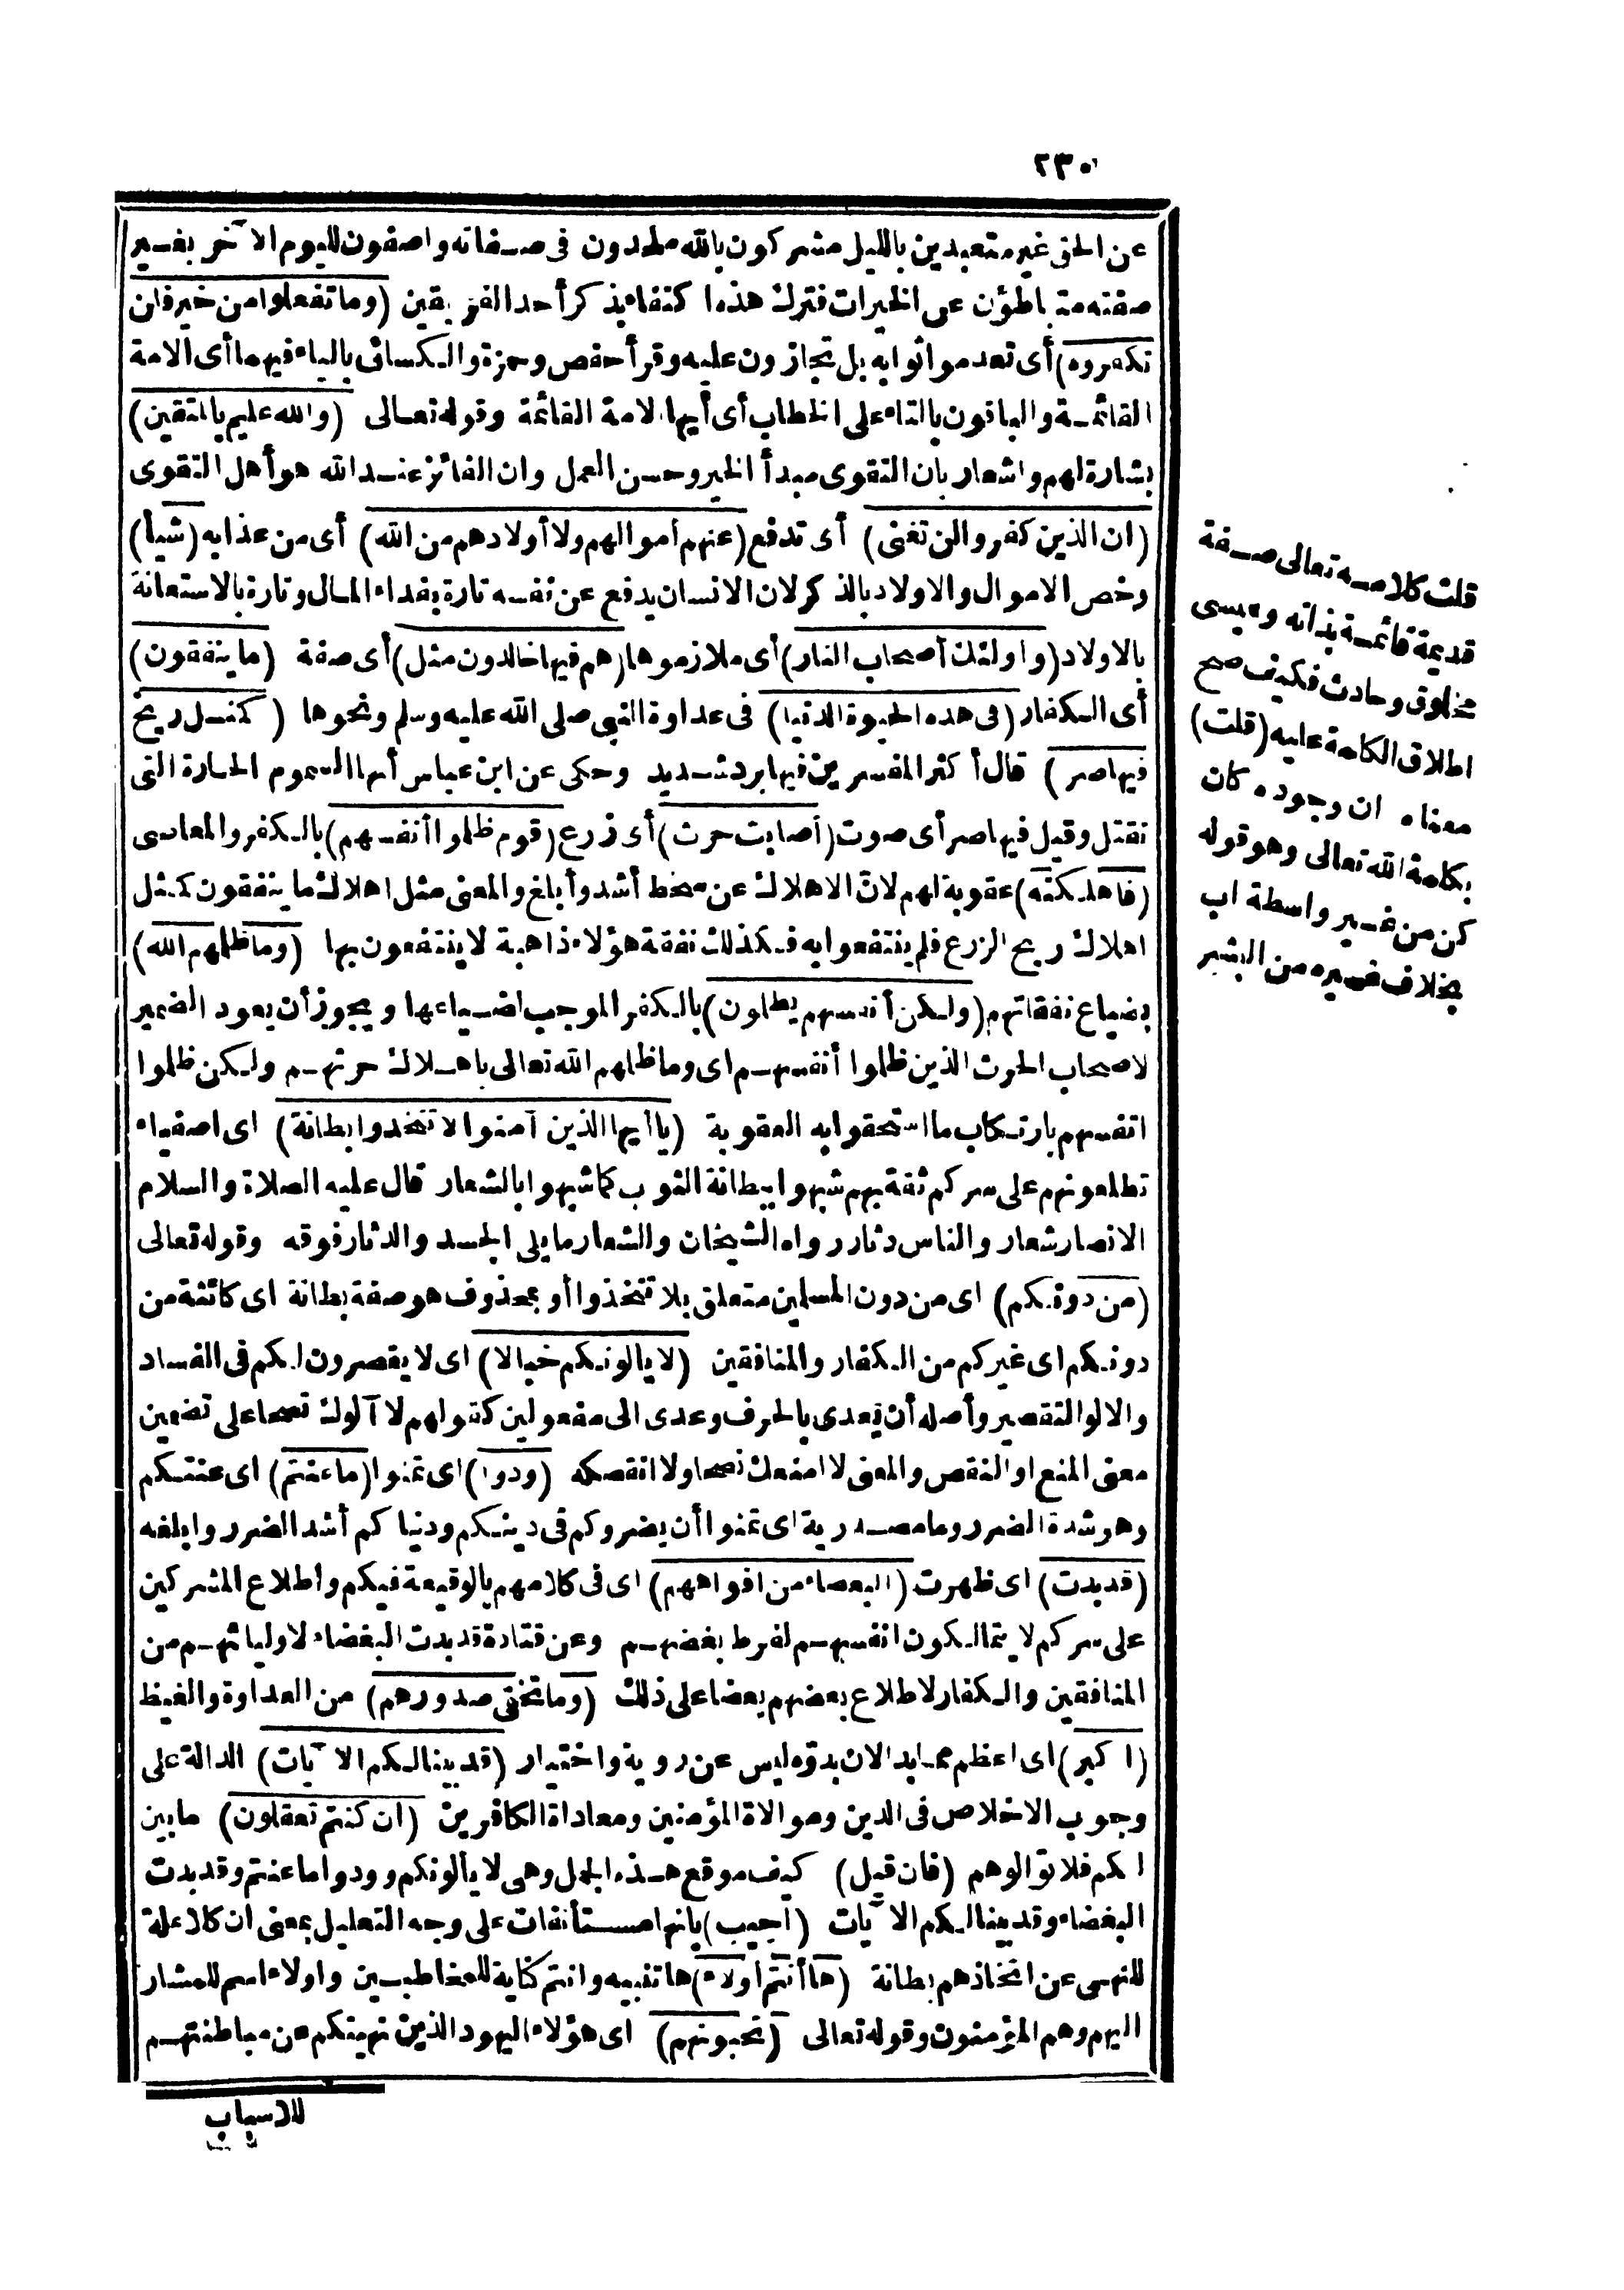 ٢٣٠
عن الحق غير متعبدين بالليل مشركون بالله ملحدون فى صفاته واصفون لليوم الآخر بغير
صفته متباطؤن عن الخيرات فترك هذه اكتفاء بذكر أحد الفريقين (وما تفعلوا من خير فان
تكفروه) أى تعدموا ثوابه بل تجازون عليه وقرأ حفص وحمزة والكسائى بالياء فيهما أى الامة
القائمة والباقون بالتاء على الخطاب أى أيها الامة القائمة وقوله تعالى (والله عليم بالمتقين)
بشارة لهم واشعار بان التقوى مبدأ الخير وحسن العمل وان الفائز عند الله هو أهل التقوى
(ان الذين كفروا لن تغنى) أى تدفع (عنهم أموالهم ولا أولادهم من الله) أى من عذابه (شيأ)
وخص الاموال والاولاد بالذكر لان الانسان يدفع عن نفسه تارة بفداء المال وتارة بالاستعانة
بالاولاد (واولئك أصحاب النار) أى ملازموها (هم فيها خالدون مثل) أى صفة (ما ينفقون)
أى الكفار (فى هذه الحيوة الدنيا) فى عداوة النبى صلى الله عليه وسلم ونحوها (كمثل ريح
فيها صر) قال أكثر المفسرين فيها برد شديد وحكى عن ابن عباس أنها السموم الحارة التى
تقتل وقيل فيها صر أى صوت (أصابت حرث) أى زرع (قوم ظلموا أنفسهم) بالكفر والمعاصى
(فأهلكته) عقوبة لهم لان الاهلاك عن سخط أشد وأبلغ والمعنى مثل اهلاك ما ينفقون كمثل
اهلاك ريح الزرع فلم ينتفعوا به فكذلك نفقة هؤلاء ذاهبة لا ينتفعون بها (وما ظلمهم الله)
بضياع نفقاتهم (ولكن أنفسهم يظلمون) بالكفر الموجب لضياعها ويجوز أن يعود الضمير
لاصحاب الحرث الذين ظلموا أنفسهم اى وما ظلمهم الله تعالى باهلاك حرثهم ولكن ظلموا
انفسهم بارتكاب ما استحقوا به العقوبة (يا أيها الذين آمنوا لا تتخذوا بطانة) اى اصفياء
تطلعونهم على سركم ثقة بهم شبهوا ببطانة الثوب كما شبهوا بالشعار قال عليه الصلاة والسلام
الانصار شعار والناس دثار رواه الشيخان والشعار ما يلى الجسد والدثار فوقه وقوله تعالى
(من دونكم) اى من دون المسلمين متعلق بلا تتخذوا أو بمحذوف هو صفة بطانة اى كائنة من
دونكم اى غيركم من الكفار والمنافقين (لا يالونكم خبالا) اى لا يقصرون لكم فى الفساد
والالو التقصير وأصله أن يعدى بالحرف وعدى الى مفعولين كقولهم لا آلوك نصحا على تضمين
معنى المنع او النقص والمعنى لا امنعك نصحا ولا انقصكه (ودوا) اى تمنوا (ما عنتم) اى عنتكم
وهو شدة الضرر وما مصدرية اى تمنوا أن يضروكم فى دينكم ودنياكم أشد الضرر وابلغه
(قد بدت) اى ظهرت (البغضاء من افواههم) اى فى كلامهم بالوقيعة فيكم واطلاع المشركين
على سركم لا يتمالكون انفسهم لفرط بغضهم وعن قتادة قد بدت البغضاء لاوليائهم من
المنافقين والكفار لاطلاع بعضهم بعضا على ذلك (وما تخفى صدورهم) من العداوة والغيظ
(اكبر) اى اعظم مما بدا لان بدوّه ليس عن روية واختيار (قد بينا لكم الآيات) الدالة على
وجوب الاخلاص فى الدين وموالاة المؤمنين ومعاداة الكافرين (ان كنتم تعقلون) ما بين
لكم فلا توالوهم (فان قيل) كيف موقع هذه الجمل وهى لا يألونكم وودوا ما عنتم وقد بدت
البغضاء وقد بينا لكم الآيات (اجيب) بانها مستأنفات على وجه التعليل بمعنى ان كلا علة
للنهى عن اتخاذهم بطانة (ها أنتم أولاء) ها تنبيه وانتم كناية للمخاطبين واولاء اسم للمشار
اليهم وهم المؤمنون وقوله تعالى (تحبونهم) اى هؤلاء اليهود الذين نهيتكم عن مباطنتهم
للاسباب
قلت كلامه تعالى صفة
قديمة قائمة بذاته وعيسى
مخلوق وحادث فكيف صح
اطلاق الكلمة عليه (قلت)
معناه ان وجوده كان
بكلمة الله تعالى وهو قوله
كن من غير واسطة اب
بخلاف غيره من البشر